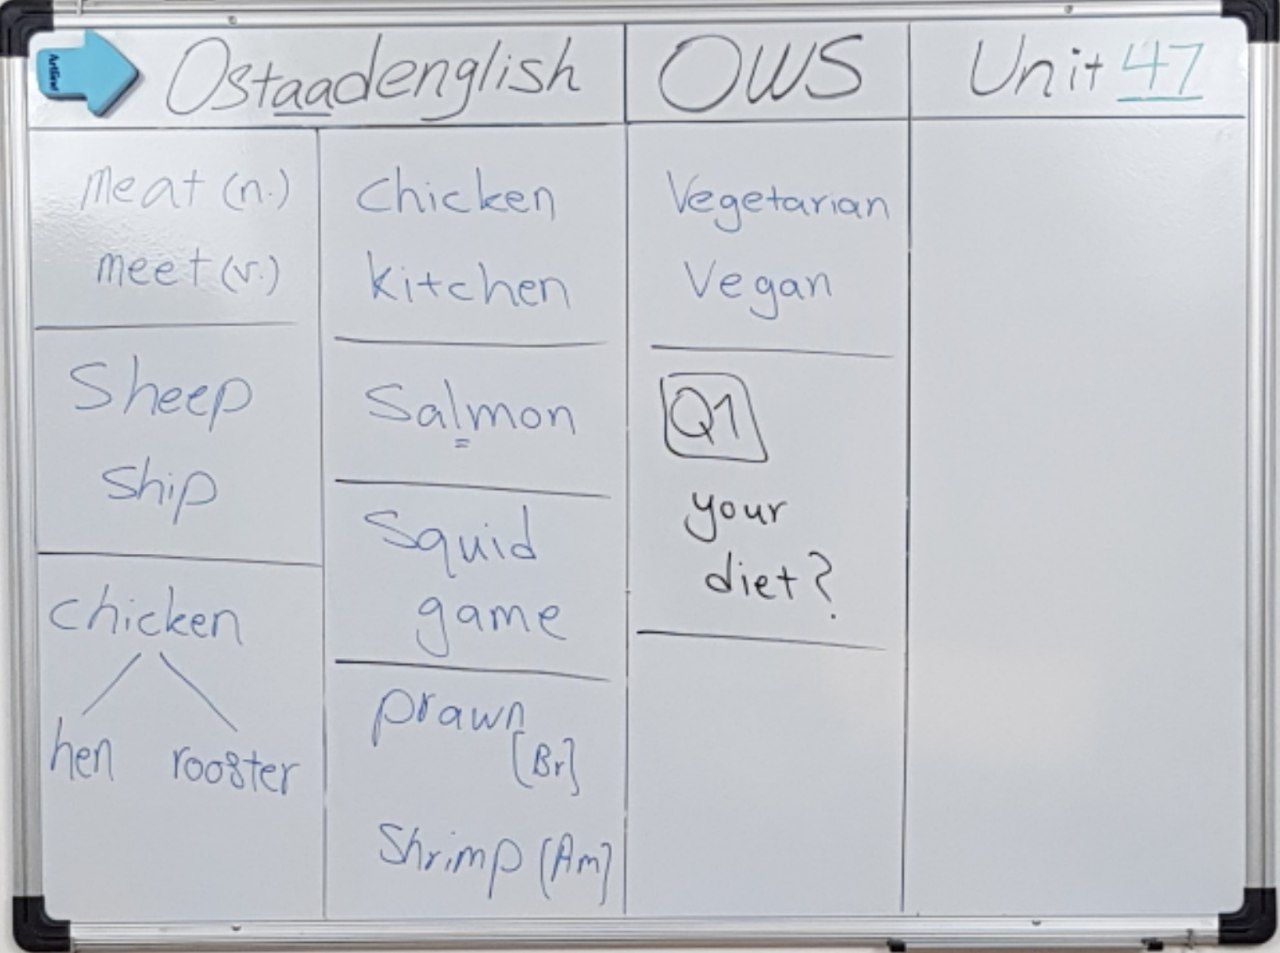 Ostaadenglish
OWS
Unit 47
meat (n.)
meet (v.)
Sheep
Ship
chicken
hen rooster
Chicken
kitchen
Salmon
Squid
game
prawn
[Br]
Shrimp [Am]
Vegetarian
Vegan
Q1
your
diet?
Artline